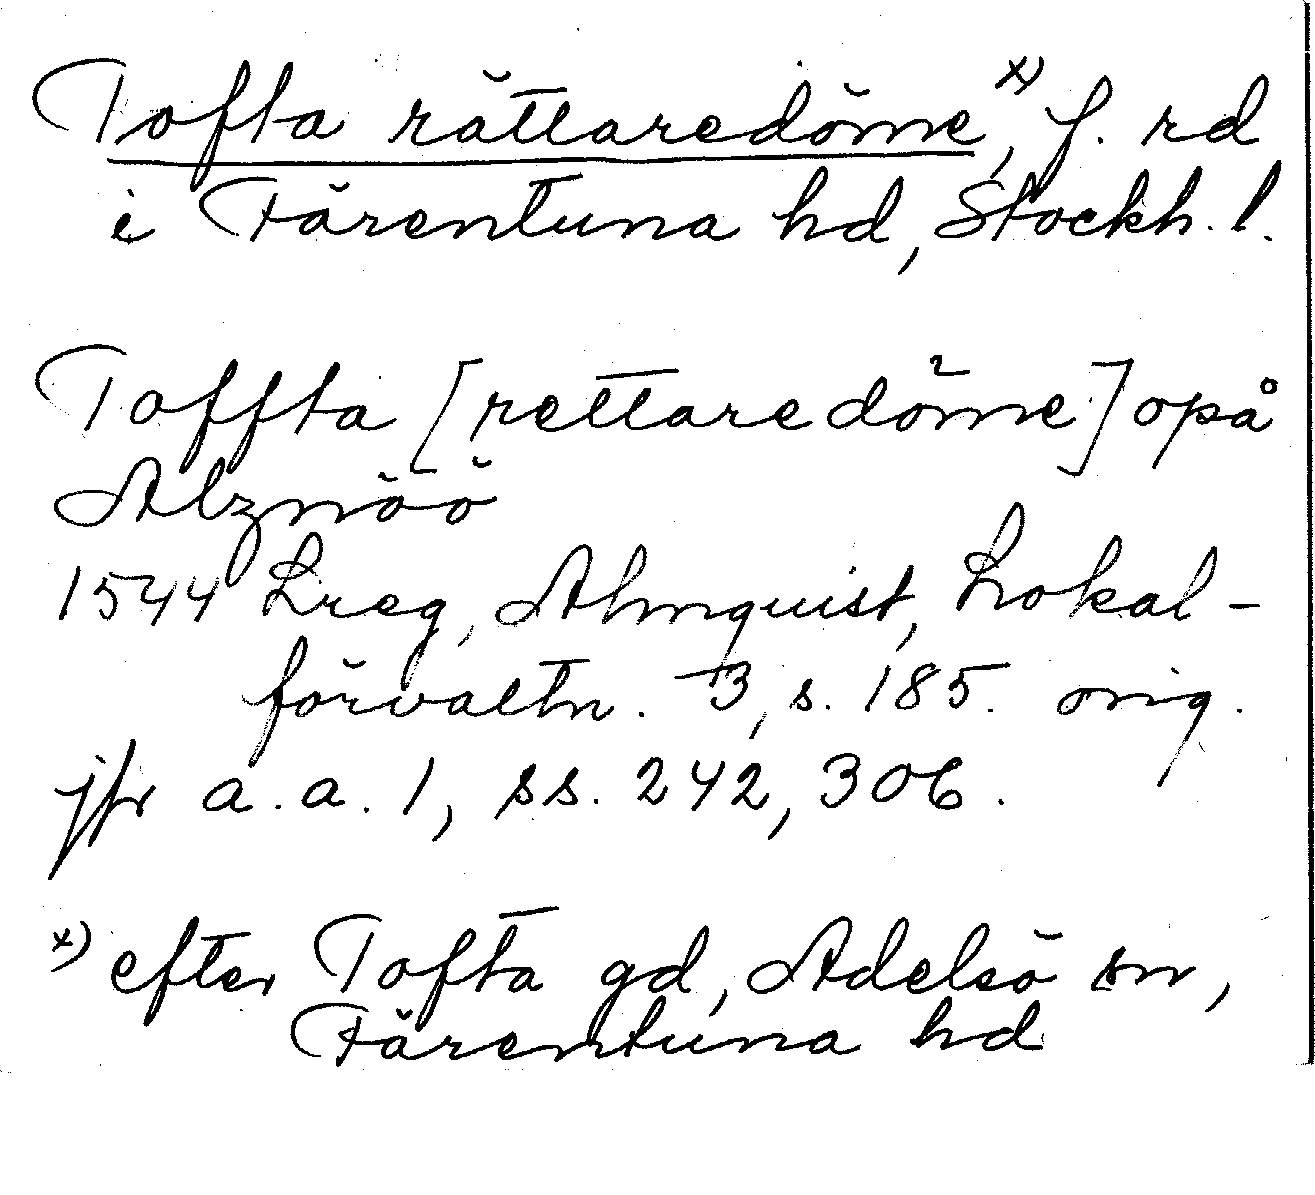 Tofta rättaredöme,ˣ⁾ f. rd
i Färentuna hd, Stockh. l.
Toffta [rettaredöme] opå
Alznöö
1544 Lreg, Almquist, Lokal-
förvaltn. 3, s. 185. orig.
jfr a. a. 1, ss. 242, 306.
x) efter Tofta gd, Adelsö sn,
Färentuna hd